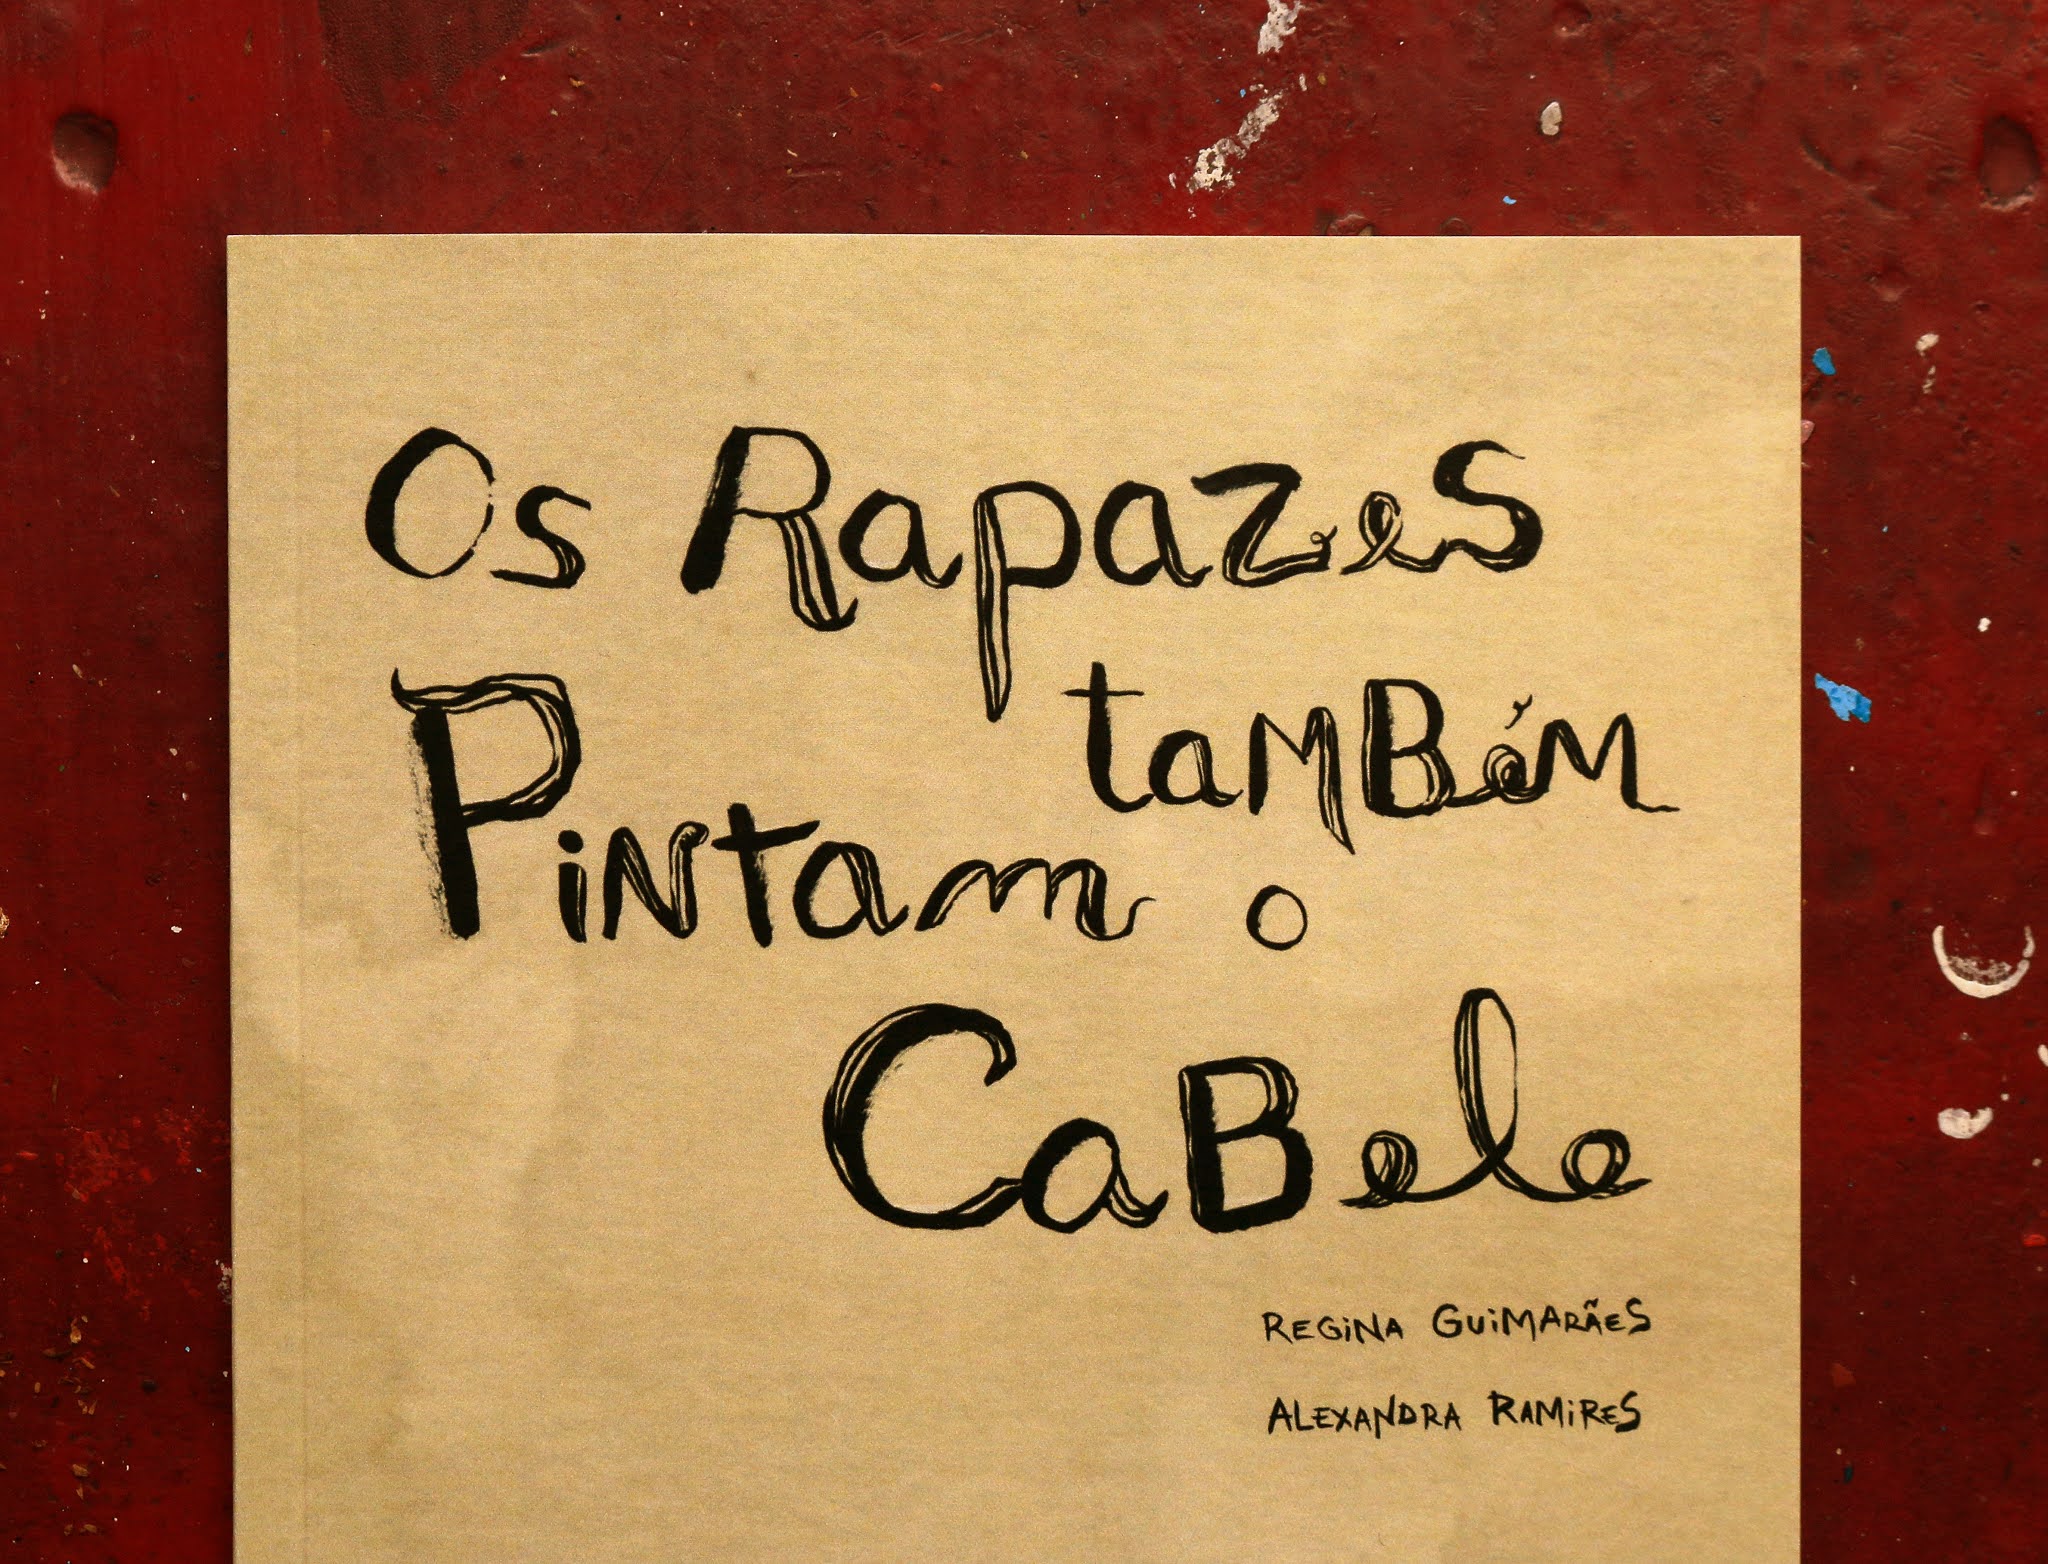 Os Rapazes
Pintam também
o
Cabelo
Regina Guimarães
Alexandra Ramires